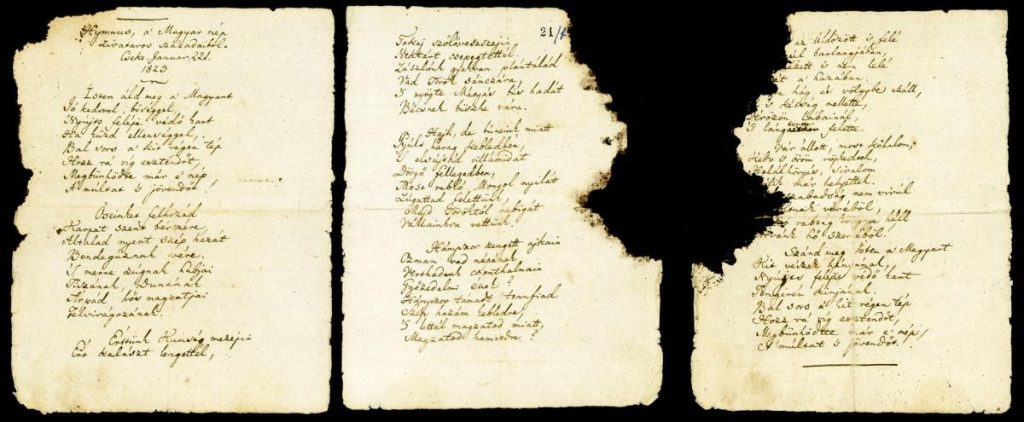 Hymnus, a Magyar nép
zivataros századaiból.
Cseke Január 22d.
1823
Isten áldd meg a Magyart
Jó kedvvel, bőséggel,
Nyújts feléje védő kart
Ha küzd ellenséggel,
Bal sors a kit régen tép
Hozz rá víg esztendőt,
Megbűnhödte már e' nép
A' múltat 's jövendőt.
Őseinket felhozád
Kárpát szent bérczére,
Általad nyert szép hazát
Bendegúznak vére.
'S merre zúgnak habjai
Tiszának, Dunának
Árpád hős magzatjai
Felvirágozának.
Értünk Kúnság mezejin
Ért kalászt lengettél,
21/
Tokaj szőlővesszejin
Nektárt csepegtettél.
Zászlónk gyakran plántálád
Vad Török sánczára,
'S nyögte Mátyás bús hadát
Bécsnek büszke vára.
Hajh, de bűneink miatt
Gyúlt harag kebledben,
'S elsújtád villámidat
Dörgő fellegedben,
Most rabló Mongol nyilát
Zúgattad felettünk,
Majd Töröktől rabigát
Vállainkra vettünk.
Hányszor zengett ajkain
Ozman vad népének
Vert hadunk csonthalmain
Győzedelmi ének!
Hányszor támadt tennfiad
Szép hazám kebledre,
'S lettél magzatod miatt,
Magzatod hamvedre?
az üldözött 's felé
barlangjában,
's nem lelé
a hazában.
hág és völgybe száll,
's kétség mellette,
Vérözön lábainál,
'S lángtenger felette.
Vár állott, most kőhalom,
Kedv 's öröm röpkedtek,
Halálhörgés, siralom
már helyettek.
szabadság nem virúl
véréből,
rabság könnye hull
hő szeméből.
Szánd meg Isten a Magyart
Kit vészek hányának,
Nyújts feléje védő kart
Tengerén kínjának.
Bal sors a kit régen tép
Hozz rá víg esztendőt,
Megbűnhödte már e' nép
A' múltat 's jövendőt.